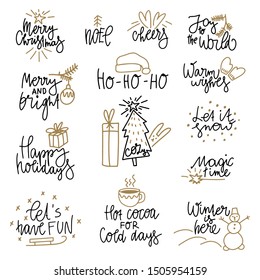 Merry
Christmas
NOEL
cheers
Joy
to the
World
Merry
AND
bright
HO-HO-HO
Warm
wishes
Let it
snow
Happy
holidays
Magic
time
let's
have FUN
Hot cocoa
FOR
Cold days
Winter
is
here
shutterstock.com · 1505954159